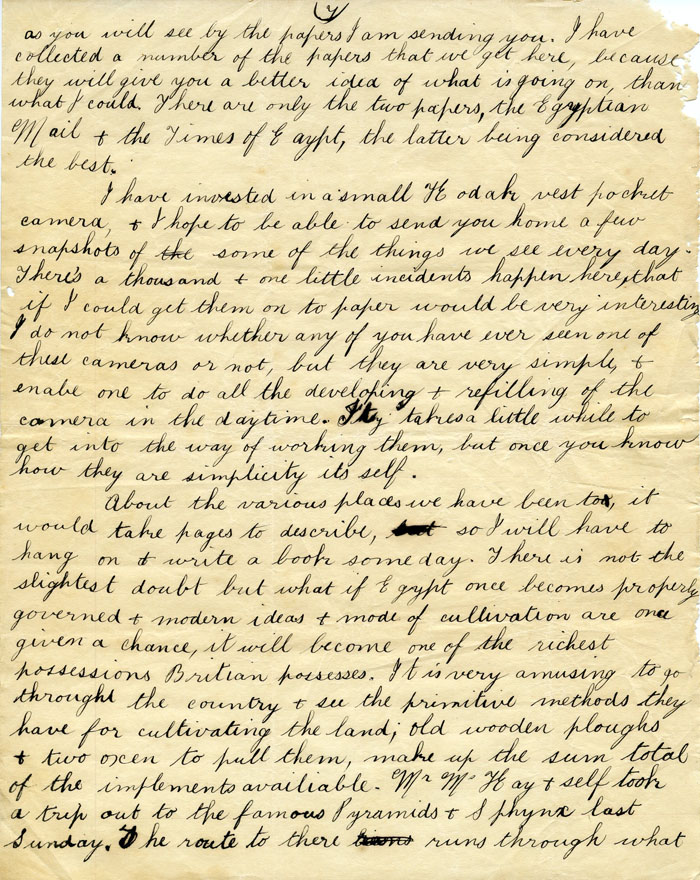 (7)
as you will see by the papers I am sending you. I have
collected a number of the papers that we get here, because
they will give you a better idea of what is going on, than
what I could. There are only the two papers, the Egyptian
Mail + the Times of Eaypt, the latter being considered
the best.
I have invested in a small Kodak vest pocket
camera, + I hope to be able to send you home a few
snapshots of the some of the things we see every day.
There's a thousand + one little incidents happen here, that
if I could get them on to paper would be very interesting
I do not know whether any of you have ever seen one of
these cameras or not, but they are very simple, +
enabe one to do all the developing + refilling of the
camera in the daytime. It takes a little while to
get into the way of working them, but once you know
how they are simplicity its self.
About the various places we have been to, it
would take pages to describe, but so I will have to
hang on + write a book someday. There is not the
slightest doubt but what if Egypt once becomes properly
governed + modern ideas + mode of cultivation are once
given a chance, it will become one of the richest
possessions Britian possesses. It is very amusing to go
throught the country + see the primitive methods they
have for cultivating the land; old wooden ploughs
+ two oxen to pull them, make up the sum total
of the implements availiable. Mr McKay + self took
a trip out to the famous Pyramids + Sphynx last
Sunday. The route to there runs through what